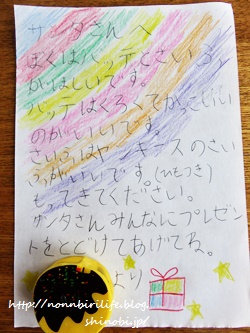 サンタさんへ
ぼくはバッテとさいふ
がほしいです。
バッテはくろくてかっこいい
のがいいです。
さいふはヤンキースのさい
ふがいいです。(ひもつき)
もってきてください。
サンタさんみんなにプレゼン
トをとどけてあげてね。
より
http://nonnbirilife.blog.
shinobi.jp/